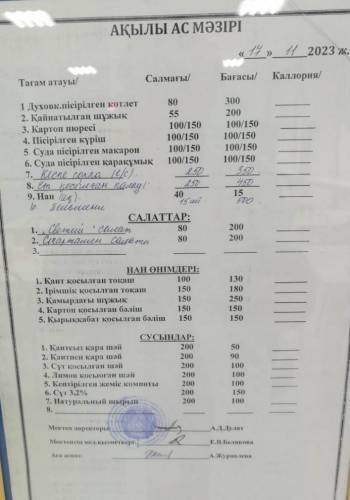 АҚЫЛЫ АС МӘЗІРІ
« 17 » 11 2023 ж.
Тағам атауы/ Салмағы/ Бағасы/ Каллория/
1 Духовк.пісірілген котлет 80 300
2. Қайнатылған шұжық 55 200
3. Картоп пюресі 100/150 100/150
4. Пісірілген күріш 100/150 100/150
5 Суда пісірілген макарон 100/150 100/150
6. Суда пісірілген қарақұмық 100/150 100/150
7. 250 350
8. Ет қосылған 250 450
9. Нан 40 15
10. 500
САЛАТТАР:
1. салат 80 200
2. салаты 80 200
3.
НАН ӨНІМДЕРІ:
1. Қант қосылған тоқаш 100 130
2. Ірімшік қосылған тоқаш 150 180
3. Қамырдағы шұжық 150 250
4. Картоп қосылған бәліш 150 150
5. Қырыққабат қосылған бәліш 150 150
СУСЫНДАР:
1. Қантсыз қара шай 200 50
2. Қантпен қара шай 200 90
3. Сүт қосылған шай 200 100
4. Лимон қосылған шай 200 100
5. Кептірілген жеміс компоты 200 100
6. Сүт 3,2% 200 150
7. Натуральный шырын 200 100
8.
Мектеп директоры А.Д.Дулат
Мектепсің мед.қызметкері Е.В.Беликова
Аға аспаз А.Журавлева